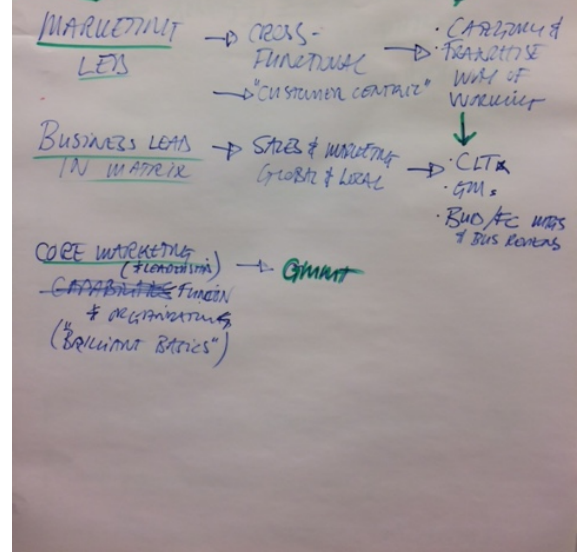 MARKETING
LED
→ CROSS-
FUNCTIONAL
→ "CUSTOMER CENTRIC"
→ · CATEGORY &
· FRANCHISE
WAY OF
WORKING
BUSINESS LEAD
IN MATRIX
→ SALES & MARKETING
GLOBAL & LOCAL
→ · CLTs
· GMs
· BUD/FC MTGS
& BUS REVIEWS
CORE MARKETING
(& LEADERSHIP) → GMMT
CAPABILITIES FUNCTION
& ORGANISATIONS
("BRILLIANT BASICS")